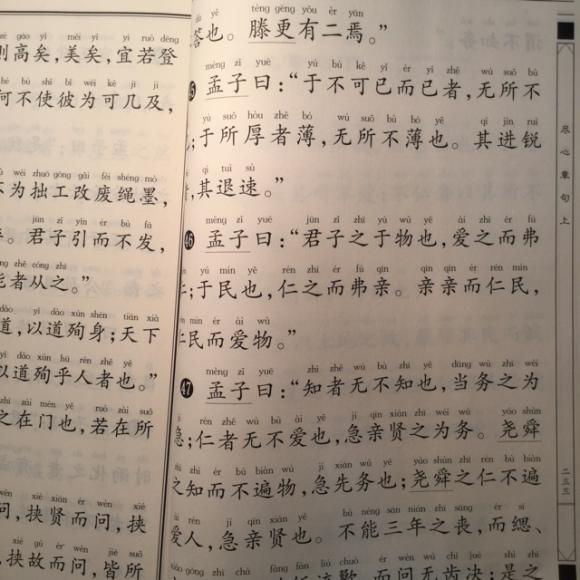 gāo yǐ měi yǐ yí ruò dēng
则高矣,美矣,宜若登
hé bù shǐ bǐ wéi kě jī jí
何不使彼为可几及,
wèi zhuō gōng gǎi fèi shéng mò
不为拙工改废绳墨,
jūn zǐ yǐn ér bù fā
。君子引而不发,
néng zhě cóng zhī
能者从之。”
dào yǐ dào xùn shēn tiān xià
道,以道殉身;天下
yǐ dào xùn hū rén zhě yě
以道殉乎人者也。”
zhī zài mén yě ruò zài suǒ
之在门也,若在所
wèn xié xián ér wèn xié
问,挟贤而问,挟
xié gù ér wèn jiē suǒ
挟故而问,皆所
dá yě téng gēng yǒu èr yān
答也。滕更有二焉。”
mèng zǐ yuē yú bù kě yǐ ér yǐ zhě wú suǒ bù
孟子曰:“于不可已而已者,无所不
yú suǒ hòu zhě bó wú suǒ bù bó yě qí jìn ruì
;于所厚者薄,无所不薄也。其进锐
qí tuì sù
,其退速。”
mèng zǐ yuē jūn zǐ zhī yú wù yě ài zhī ér fú
46 孟子曰:“君子之于物也,爱之而弗
yú mín yě rén zhī ér fú qīn qīn qīn ér rén mín
;于民也,仁之而弗亲。亲亲而仁民,
mín ér ài wù
民而爱物。”
mèng zǐ yuē zhì zhě wú bù zhī yě dāng wù zhī wéi
47 孟子曰:“知者无不知也,当务之为
jí rén zhě wú bù ài yě jí qīn xián zhī wéi wù yáo shùn
急;仁者无不爱也,急亲贤之为务。尧舜
zhī zhì ér bù biàn wù jí xiān wù yě yáo shùn zhī rén bù biàn
之知而不遍物,急先务也;尧舜之仁不遍
ài rén jí qīn xián yě bù néng sān nián zhī sāng ér sī
爱人,急亲贤也。不能三年之丧,而缌、
fàng fàn liú chuò ér wèn wú chǐ jué shì zhī
而问无齿决;是之
尽心章句上
二三三